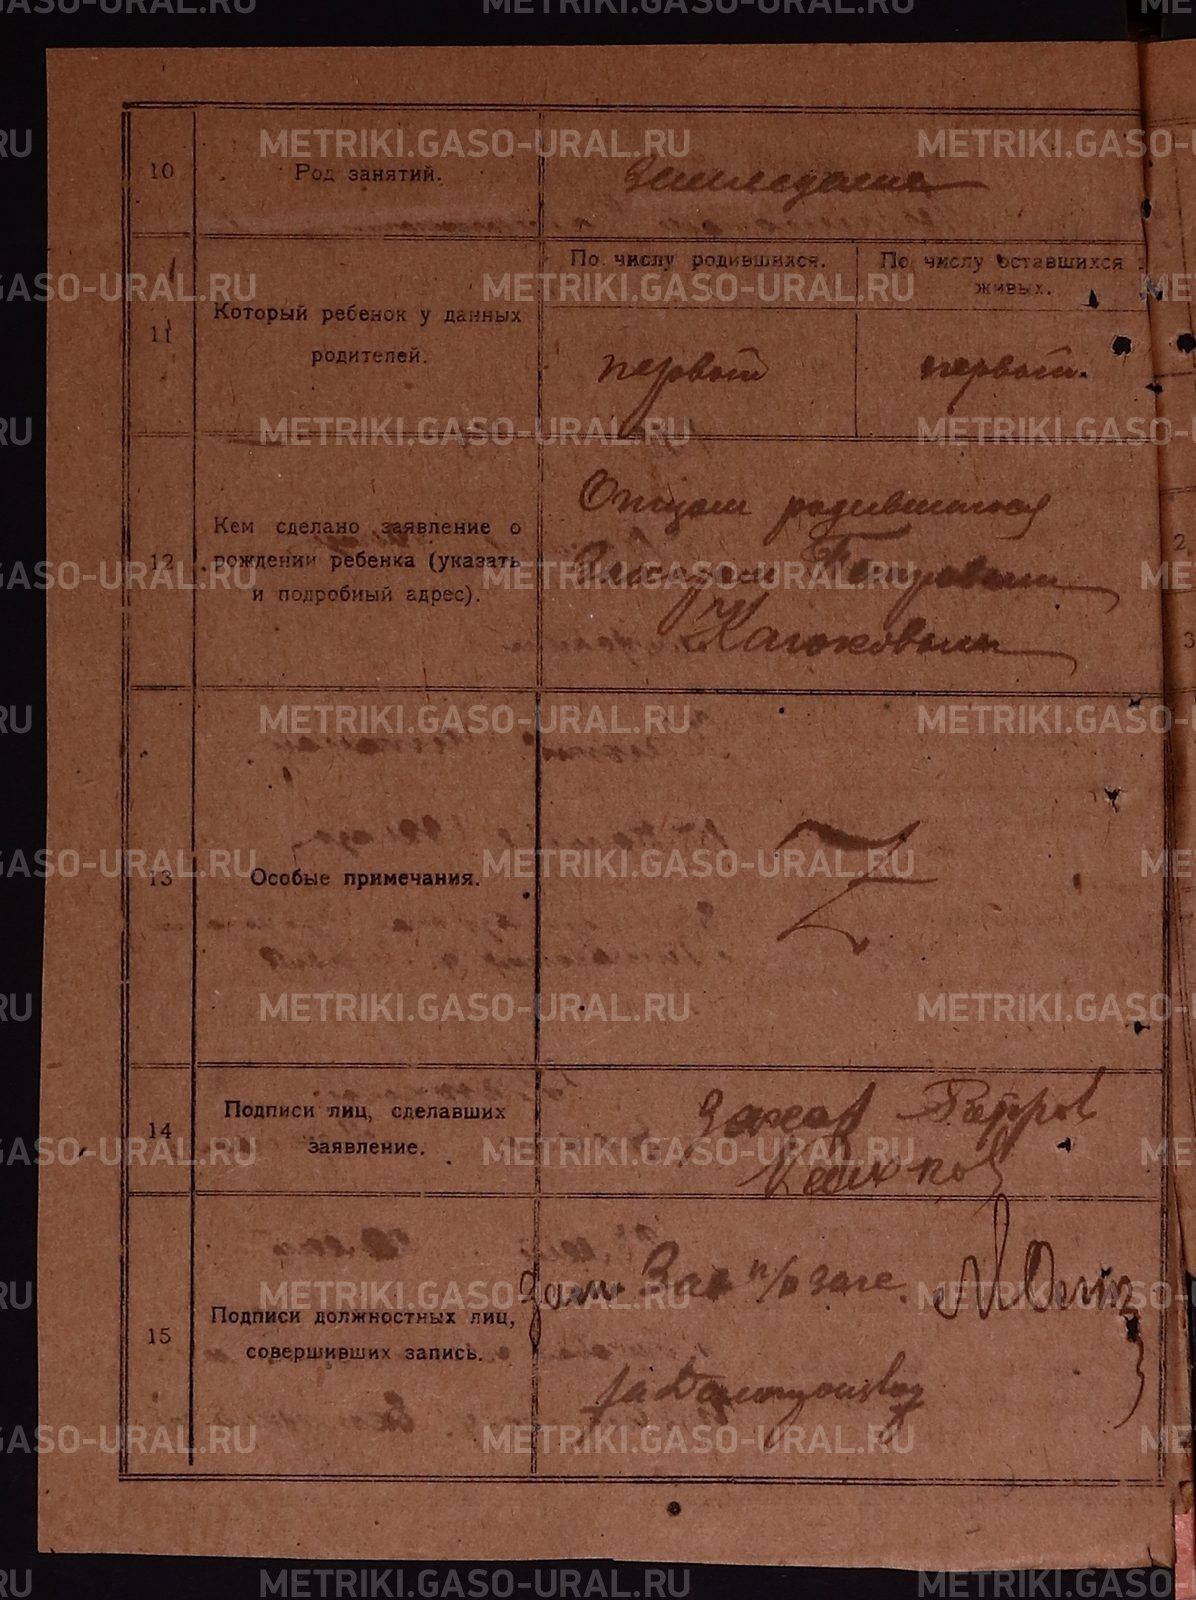 10
Род занятий.
Земледелие
11
Который ребенок у данных
родителей.
По числу родившихся.
По числу оставшихся
живых.
первый
первый.
12
Кем сделано заявление о
рождении ребенка (указать
и подробный адрес).
Отцом родившагося
Петровым
13
Особые примечания.
Z
14
Подписи лиц, сделавших
заявление.
Захар Петров
15
Подписи должностных лиц,
совершивших запись.
Зам. Зав п/о загс.
2
3
METRIKI.GASO-URAL.RU